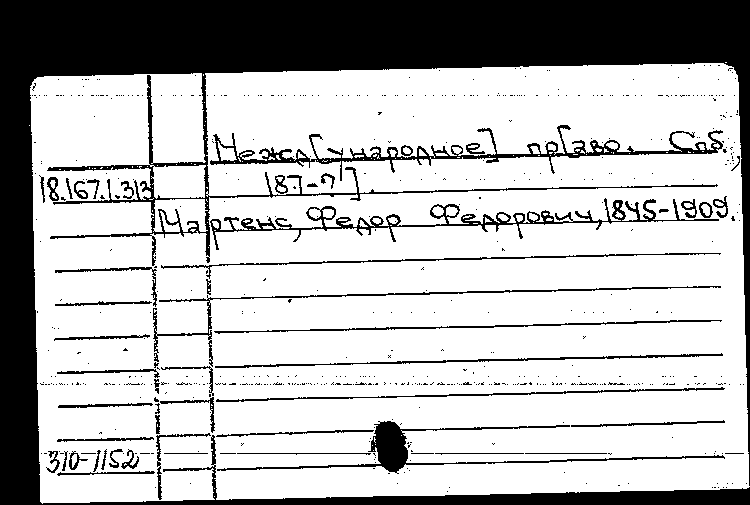 Межд[ународное] пр[аво. Спб.
18.167.1.313 187-?].
Мартенс, Федор Федорович, 1845-1909.
310-1152